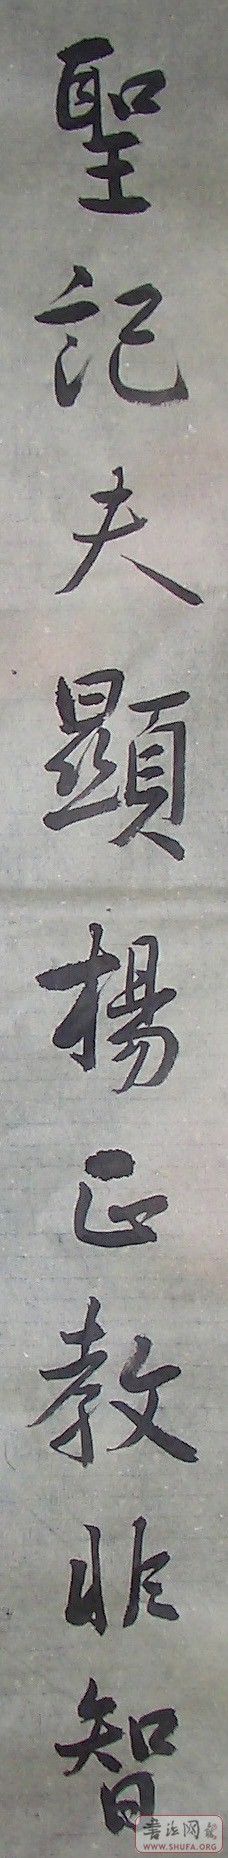 聖記夫顯楊正教非智
書法网
WWW.SHUFA.ORG